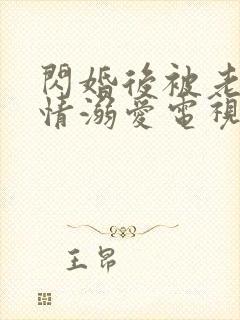 閃婚後被老
情溺愛電視
王昂